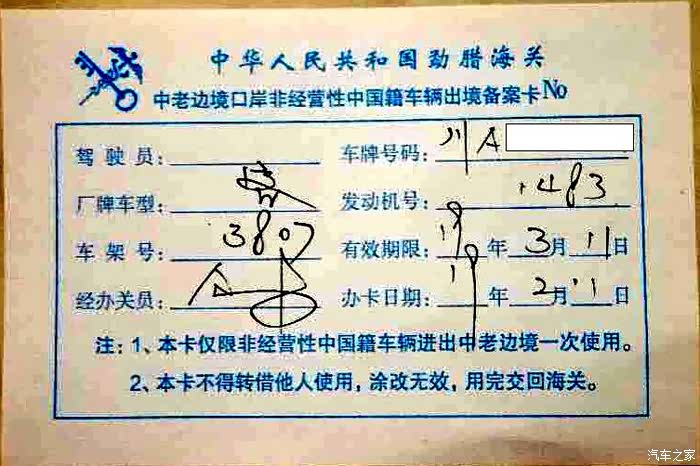 中华人民共和国勐腊海关
中老边境口岸非经营性中国籍车辆出境备案卡No
驾驶员： 车牌号码：川A
厂牌车型： 发动机号：1483
车架号：3807 有效期限：19年3月11日
经办关员： 办卡日期：19年2月11日
注：1、本卡仅限非经营性中国籍车辆进出中老边境一次使用。
2、本卡不得转借他人使用，涂改无效，用完交回海关。
汽车之家